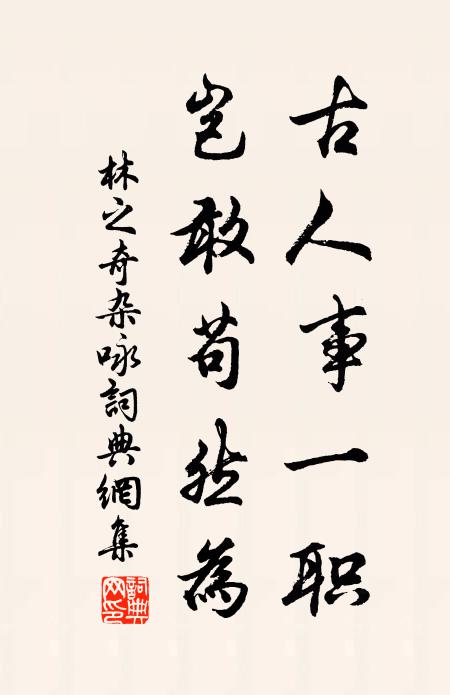 古人事一职
岂敢苟然為
林之奇杂咏詞典網集
詞典
网印